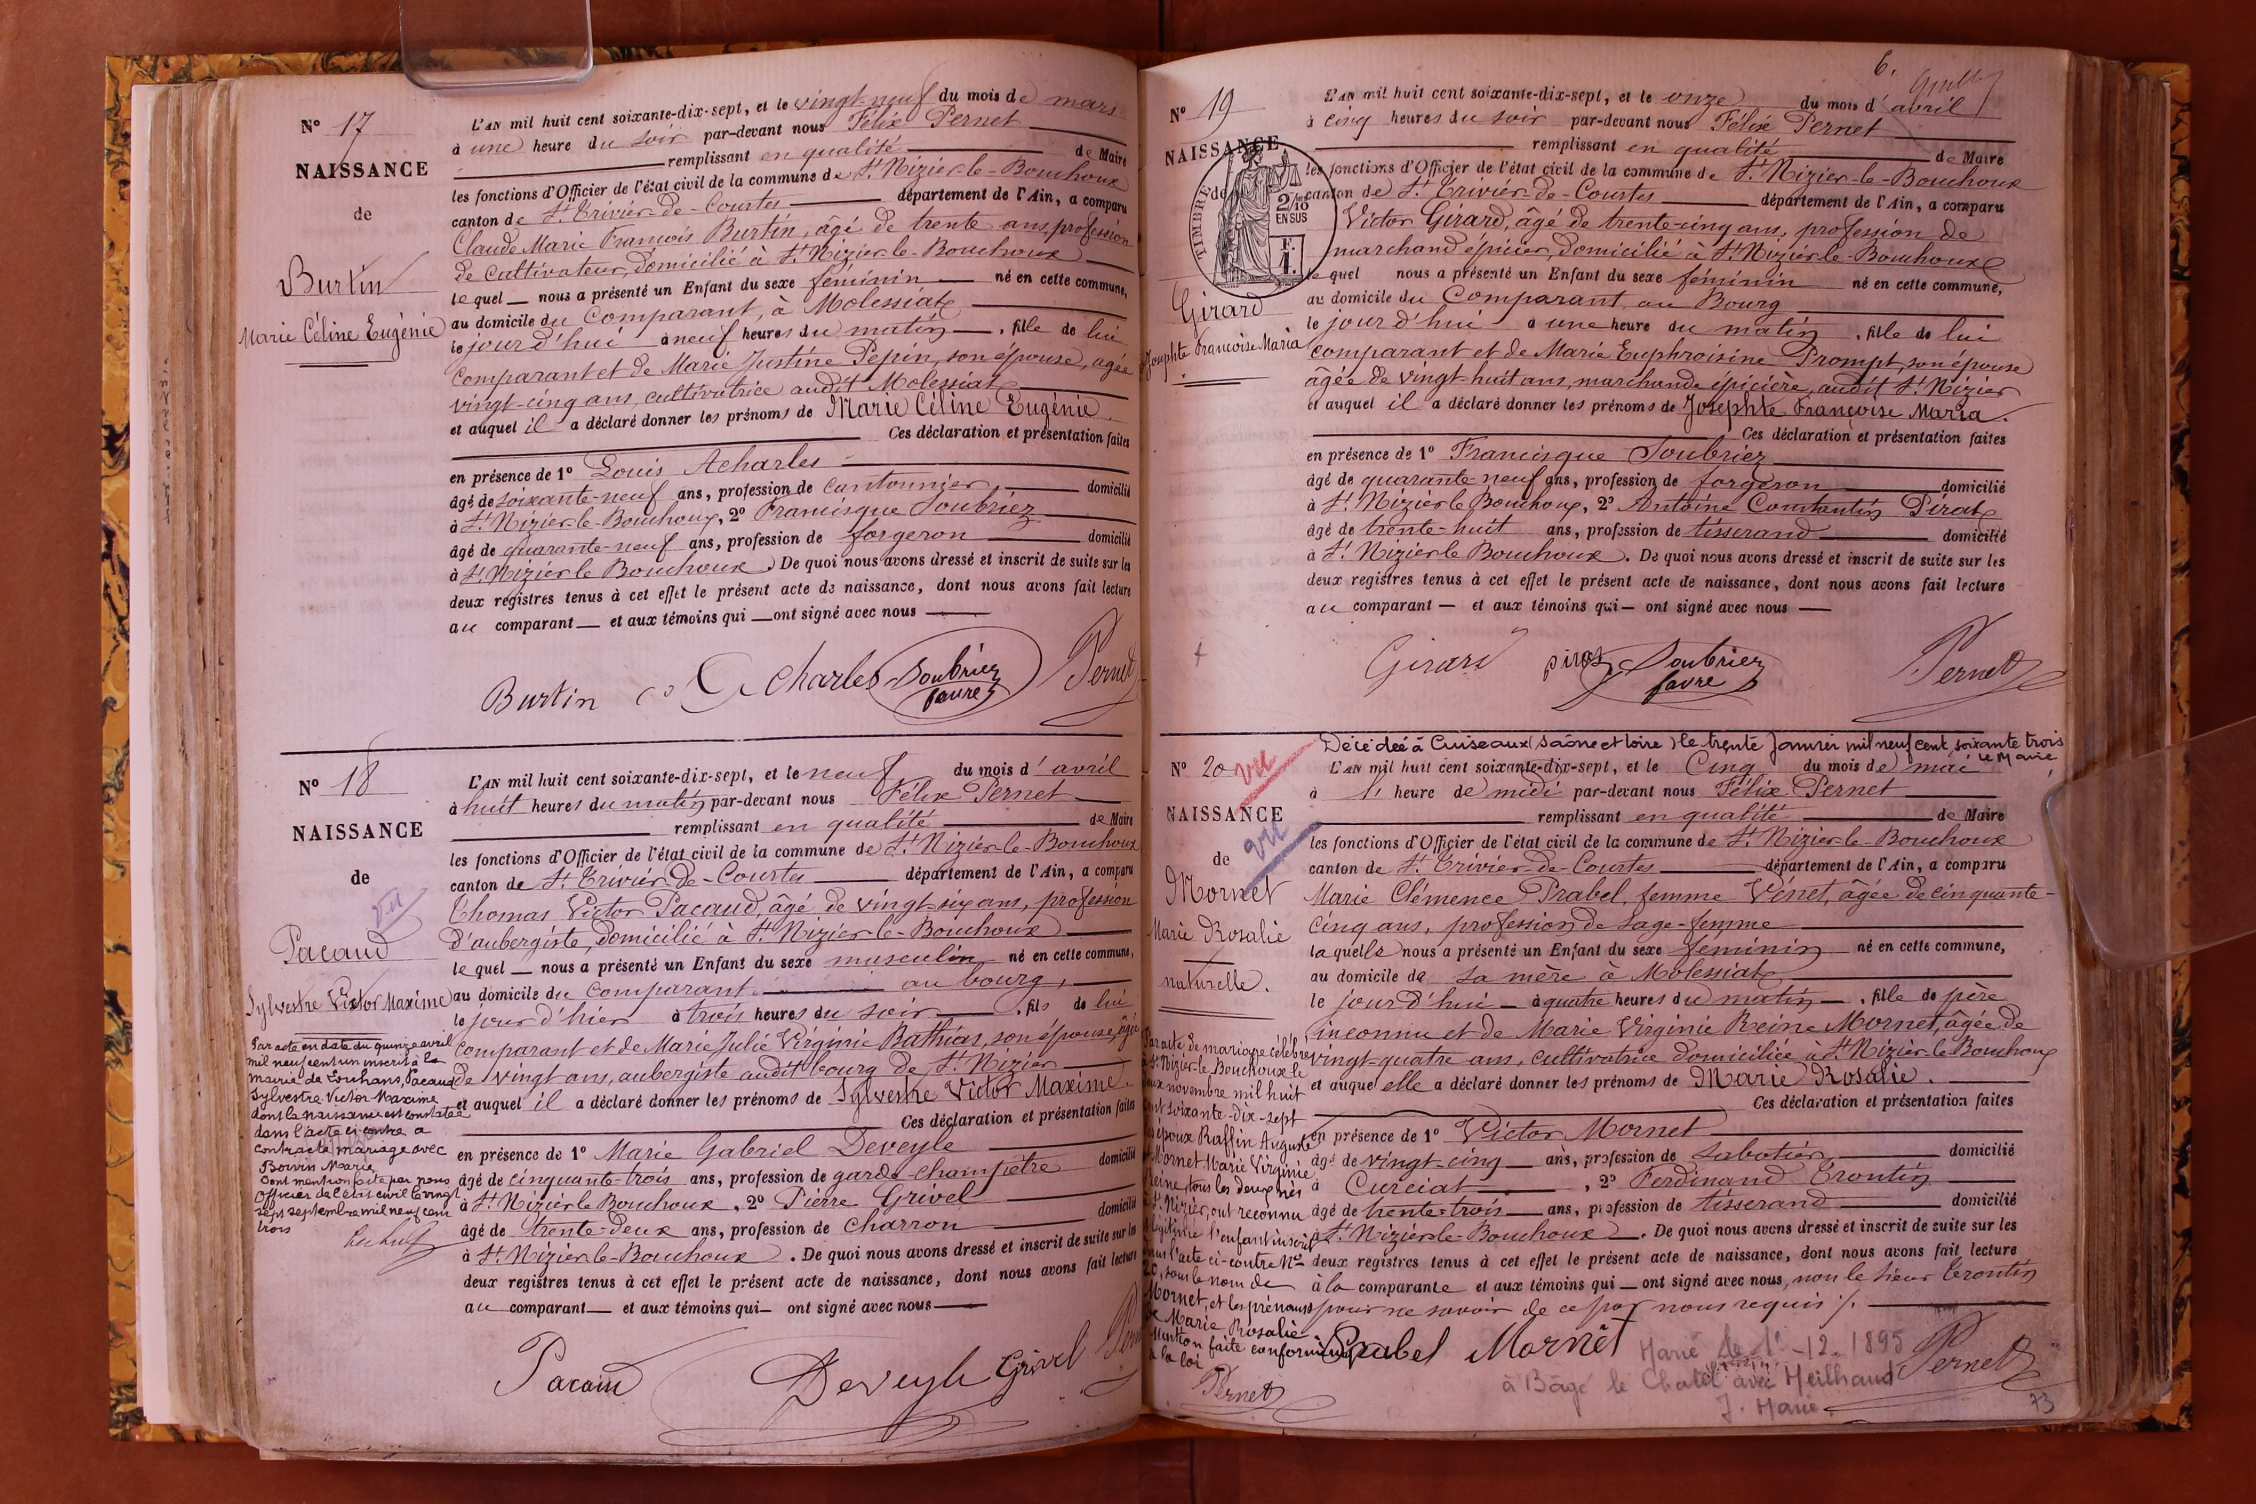 N° 17
NAISSANCE
de
Burtin
Marie Céline Eugénie
L'AN mil huit cent soixante-dix-sept, et le vingt-neuf du mois de mars
à une heure du soir par-devant nous Félix Pernet
remplissant en qualité de Maire
les fonctions d'Officier de l'état civil de la commune de St Nizier-le-Bouchoux
canton de St Trivier-de-Courtes département de l'Ain, a comparu
Claude Marie François Burtin, âgé de trente ans, profession
de cultivateur, domicilié à St Nizier-le-Bouchoux
lequel nous a présenté un Enfant du sexe féminin né en cette commune,
au domicile du Comparant, à Molessiat
le jour d'hui à neuf heures du matin, fille de lui
comparant et de Marie Justine Pepin, son épouse, agée
vingt-cinq ans, cultivatrice audit Molessiat
et auquel il a déclaré donner les prénoms de Marie Céline Eugénie
Ces déclaration et présentation faites
en présence de 1° Louis Acharles
âgé de soixante-neuf ans, profession de cantonnier domicilié
à St Nizier-le-Bouchoux, 2° Francisque Soubriez
âgé de quarante-neuf ans, profession de forgeron domicilié
à St Nizier le Bouchoux. De quoi nous avons dressé et inscrit de suite sur les
deux registres tenus à cet effet le présent acte de naissance, dont nous avons fait lecture
au comparant et aux témoins qui ont signé avec nous
Burtin Acharles Soubriez Pernet
favre
N° 18
NAISSANCE
de
vu
Pacaud
Sylvestre Victor Maxime
Par acte en date du quinze avril
mil neuf cent un inscrit à la
mairie de Louhans, Pacaud
Sylvestre Victor Maxime
dont la naissance est constatée
dans l'acte ci contre a
contracté mariage avec
Bowin Marie
Dont mention faite par nous
Officier de l'état civil le vingt
sept septembre mil neuf cent
trois
L'AN mil huit cent soixante-dix-sept, et le neuf du mois d'avril
à huit heures du matin par-devant nous Félix Pernet
remplissant en qualité de Maire
les fonctions d'Officier de l'état civil de la commune de St Nizier-le-Bouchoux
canton de St Trivier-de-Courtes département de l'Ain, a comparu
Thomas Victor Pacaud, âgé de vingt-six ans, profession
d'aubergiste, domicilié à St Nizier-le-Bouchoux
lequel nous a présenté un Enfant du sexe musculin né en cette commune,
au domicile du comparant au bourg,
le jour d'hier à trois heures du soir, fils de lui
comparant et de Marie Julie Virginie Bathias, son épouse, âgé
de vingt ans, aubergiste audit bourg de St Nizier
et auquel il a déclaré donner les prénoms de Sylvestre Victor Maxime.
Ces déclaration et présentation faites
en présence de 1° Marie Gabriel Deveyle
âgé de cinquante-trois ans, profession de garde-champêtre domicilié
à St Nizier le Bouchoux, 2° Pierre Grivel
âgé de trente-deux ans, profession de charron domicilié
à St Nizier-le-Bouchoux. De quoi nous avons dressé et inscrit de suite sur les
deux registres tenus à cet effet le présent acte de naissance, dont nous avons fait lecture
au comparant et aux témoins qui ont signé avec nous
Pacaud Deveyle Grivel
6.
N° 19
NAISSANCE
de
TIMBRE
2/10
EN SUS
Girard
Josephte Françoise Maria
L'AN mil huit cent soixante-dix-sept, et le onze du mois d'avril
à cinq heures du soir par-devant nous Félix Pernet
remplissant en qualité de Maire
les fonctions d'Officier de l'état civil de la commune de St Nizier-le-Bouchoux
canton de St Trivier-de-Courtes département de l'Ain, a comparu
Victor Girard, âgé de trente-cinq ans, profession de
marchand épicier, domicilié à St Nizier-le-Bouchoux
lequel nous a présenté un Enfant du sexe féminin né en cette commune,
au domicile du Comparant au Bourg
le jour d'hui à une heure du matin, fille de lui
comparant et de Marie Euphroisine Prompt, son épouse
âgée de vingt-huit ans, marchande épicière, audit St Nizier
et auquel il a déclaré donner les prénoms de Josephte Françoise Maria.
Ces déclaration et présentation faites
en présence de 1° Francisque Soubriez
âgé de quarante-neuf ans, profession de forgeron domicilié
à St Nizier le Bouchoux, 2° Antoine Constantin Pirat
âgé de trente-huit ans, profession de tisserand domicilié
à St Nizier le Bouchoux. De quoi nous avons dressé et inscrit de suite sur les
deux registres tenus à cet effet le présent acte de naissance, dont nous avons fait lecture
au comparant et aux témoins qui ont signé avec nous
Girard pirat Soubriez Pernet
favre
Décédée à Cuiseaux (Saône et Loire) le trente Janvier mil neuf cent soixante trois
le Maire,
N° 20
vu
NAISSANCE
vu
de
Mornet
Marie Rosalie
naturelle.
Par acte de mariage célébré
à St Nizier-le-Bouchoux le
deux novembre mil huit
cent soixante-dix-sept
les époux Raffin Auguste
et Mornet Marie Virginie
Reine, tous les deux nés
à St Nizier, ont reconnu
légitime l'enfant inscrit
dans l'acte ci-contre N°
20, sous le nom de
Mornet, et les prénoms
de Marie Rosalie
Mention faite conformément
à la loi
Pernet
L'AN mil huit cent soixante-dix-sept, et le Cinq du mois de mai
à 1 heure de midi par-devant nous Félix Pernet
remplissant en qualité de Maire
les fonctions d'Officier de l'état civil de la commune de St Nizier-le-Bouchoux
canton de St Trivier-de-Courtes département de l'Ain, a comparu
Marie Clémence Prabel, femme Vénet, âgée de cinquante-
cinq ans, profession de sage-femme
laquelle nous a présenté un Enfant du sexe féminin né en cette commune,
au domicile de sa mère à Molessiat
le jour d'hui à quatre heures du matin, fille de père
inconnu et de Marie Virginie Reine Mornet, âgée de
vingt-quatre ans, cultivatrice domiciliée à St Nizier le Bouchoux
et auquel elle a déclaré donner les prénoms de Marie Rosalie.
Ces déclaration et présentation faites
en présence de 1° Victor Mornet
âgé de vingt-cinq ans, profession de sabotier domicilié
à Curciat, 2° Ferdinand Trontin
âgé de trente-trois ans, profession de tisserand domicilié
à St Nizier-le-Bouchoux. De quoi nous avons dressé et inscrit de suite sur les
deux registres tenus à cet effet le présent acte de naissance, dont nous avons fait lecture
à la comparante et aux témoins qui ont signé avec nous, non le sieur Trontin
pour ne savoir de ce par nous requis ./.
Prabel Mornet Pernet
Marié le 1er-12-1895
à Bâgé le Chatel avec Meilhaud
J. Marie.
73